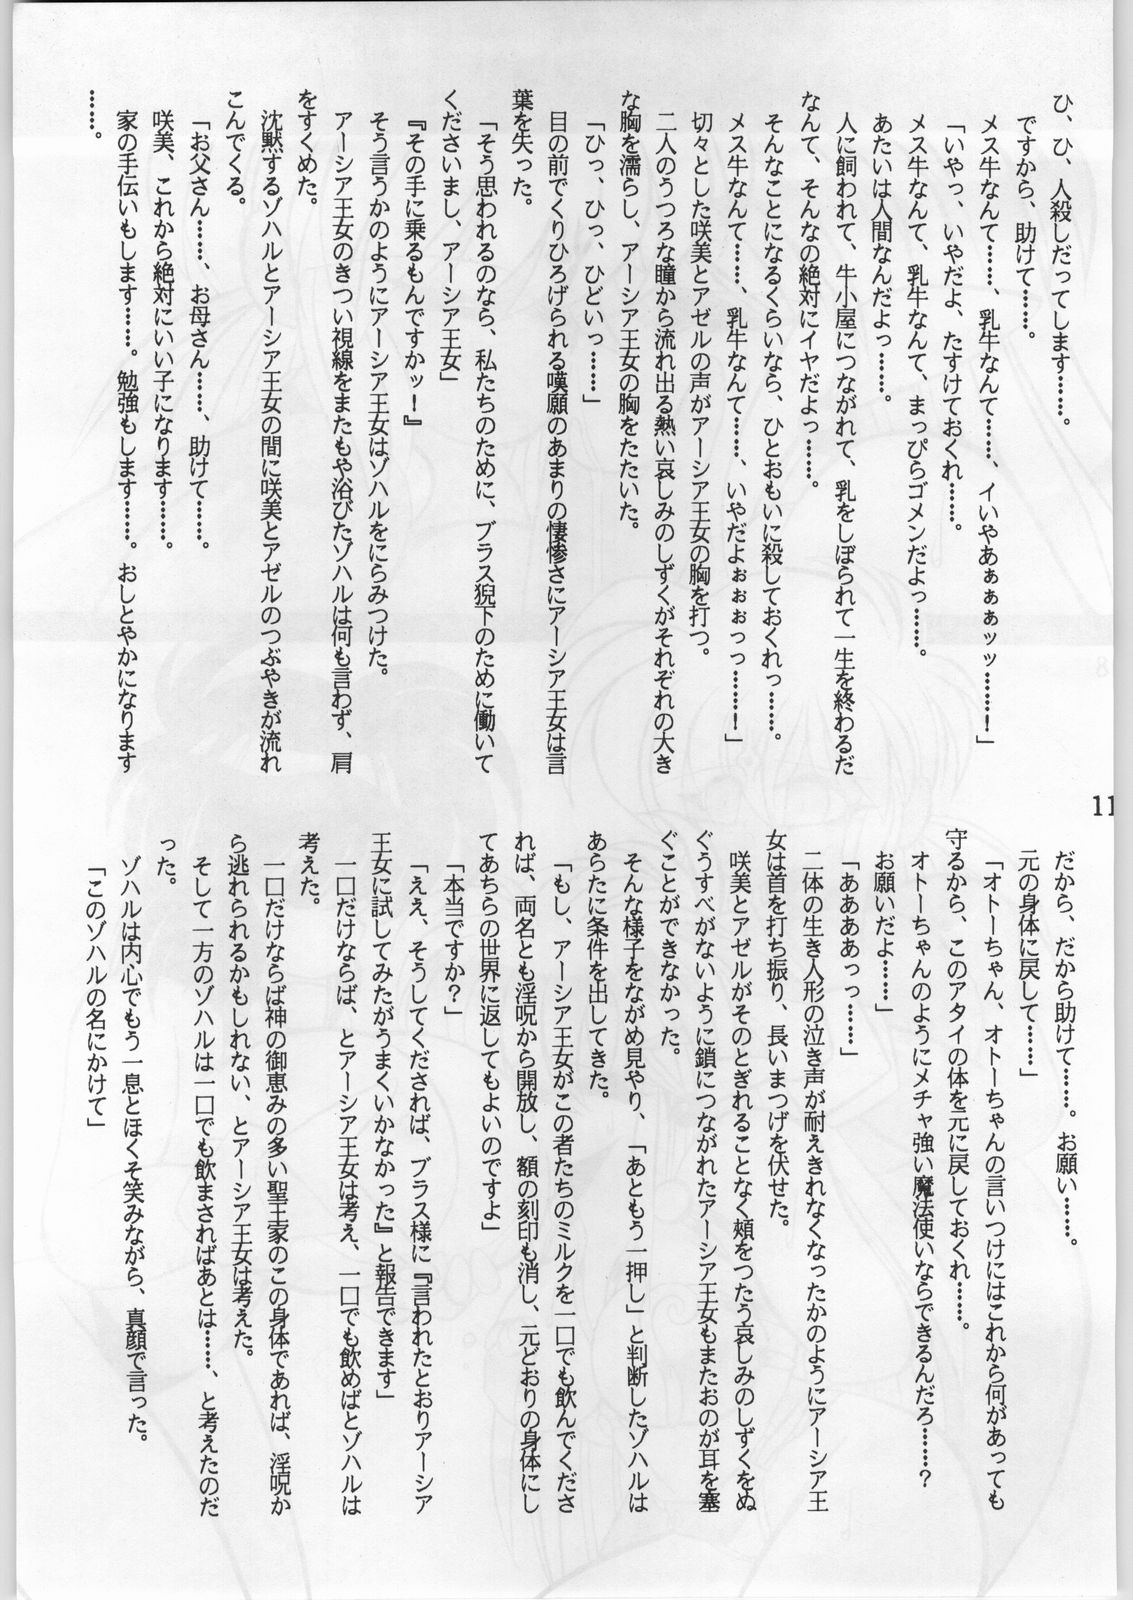 ひ、ひ、人殺しだってします……。
ですから、助けて……。
メス牛なんて……、乳牛なんて……、イいやあぁぁぁッッ………！」
「いやっ、いやだよ、たすけておくれ……。
メス牛なんて、乳牛なんて、まっぴらゴメンだよっ……。
あたいは人間なんだよっ……。
人に飼われて、牛小屋につながれて、乳をしぼられて一生を終わるだ
なんて、そんなの絶対にイヤだよっ……。
そんなことになるくらいなら、ひとおもいに殺しておくれっ……。
メス牛なんて……、乳牛なんて……、いやだよぉぉぉっっ………！」
切々とした咲美とアゼルの声がアーシア王女の胸を打つ。
二人のうつろな瞳から流れ出る熱い哀しみのしずくがそれぞれの大き
な胸を濡らし、アーシア王女の胸をたたいた。
「ひっ、ひっ、ひどいっ……」
目の前でくりひろげられる嘆願のあまりの悽惨さにアーシア王女は言
葉を失った。
「そう思われるのなら、私たちのために、ブラス猊下のために働いて
くださいまし、アーシア王女」
『その手に乗るもんですかッ！』
そう言うかのようにアーシア王女はゾハルをにらみつけた。
アーシア王女のきつい視線をまたもや浴びたゾハルは何も言わず、肩
をすくめた。
沈黙するゾハルとアーシア王女の間に咲美とアゼルのつぶやきが流れ
こんでくる。
「お父さん……、お母さん……、助けて……。
咲美、これから絶対にいい子になります……。
家の手伝いもします……。勉強もします……。おしとやかになります
……。
11
だから、だから助けて……。お願い……。
元の身体に戻して……」
「オトーちゃん、オトーちゃんの言いつけにはこれから何があっても
守るから、このアタイの体を元に戻しておくれ……。
オトーちゃんのようにメチャ強い魔法使いならできるんだろ……？
お願いだよ……」
「ああああっっ……」
二体の生き人形の泣き声が耐えきれなくなったかのようにアーシア王
女は首を打ち振り、長いまつげを伏せた。
咲美とアゼルがそのとぎれることなく頬をつたう哀しみのしずくをぬ
ぐうすべがないように鎖につながれたアーシア王女もまたおのが耳を塞
ぐことができなかった。
そんな様子をながめ見やり、「あともう一押し」と判断したゾハルは
あらたに条件を出してきた。
「もし、アーシア王女がこの者たちのミルクを一口でも飲んでくださ
れば、両名とも淫呪から開放し、額の刻印も消し、元どおりの身体にし
てあちらの世界に返してもよいのですよ」
「本当ですか？」
「ええ、そうしてくだされば、ブラス様に『言われたとおりアーシア
王女に試してみたがうまくいかなかった』と報告できます」
一口だけならば、とアーシア王女は考え、一口でも飲めばとゾハルは
考えた。
一口だけならば神の御恵みの多い聖王家のこの身体であれば、淫呪か
ら逃れられるかもしれない、とアーシア王女は考えた。
そして一方のゾハルは一口でも飲まさればあとは……、と考えたのだ
った。
ゾハルは内心でもう一息とほくそ笑みながら、真顔で言った。
「このゾハルの名にかけて」